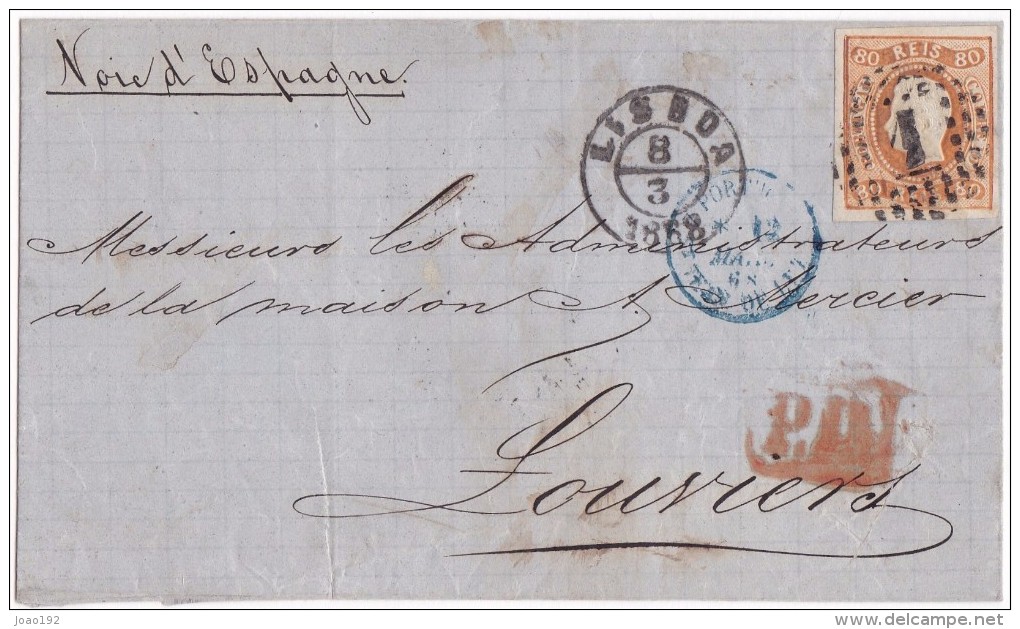 Voie d'Espagne.
80 REIS 80
CORREIO
1
80 80
LISBOA
8
3
1868
12
68
Messieurs les Administrateurs
de la maison A. Mercier
P.D.
Louviers
joao192
www.delcampe.net